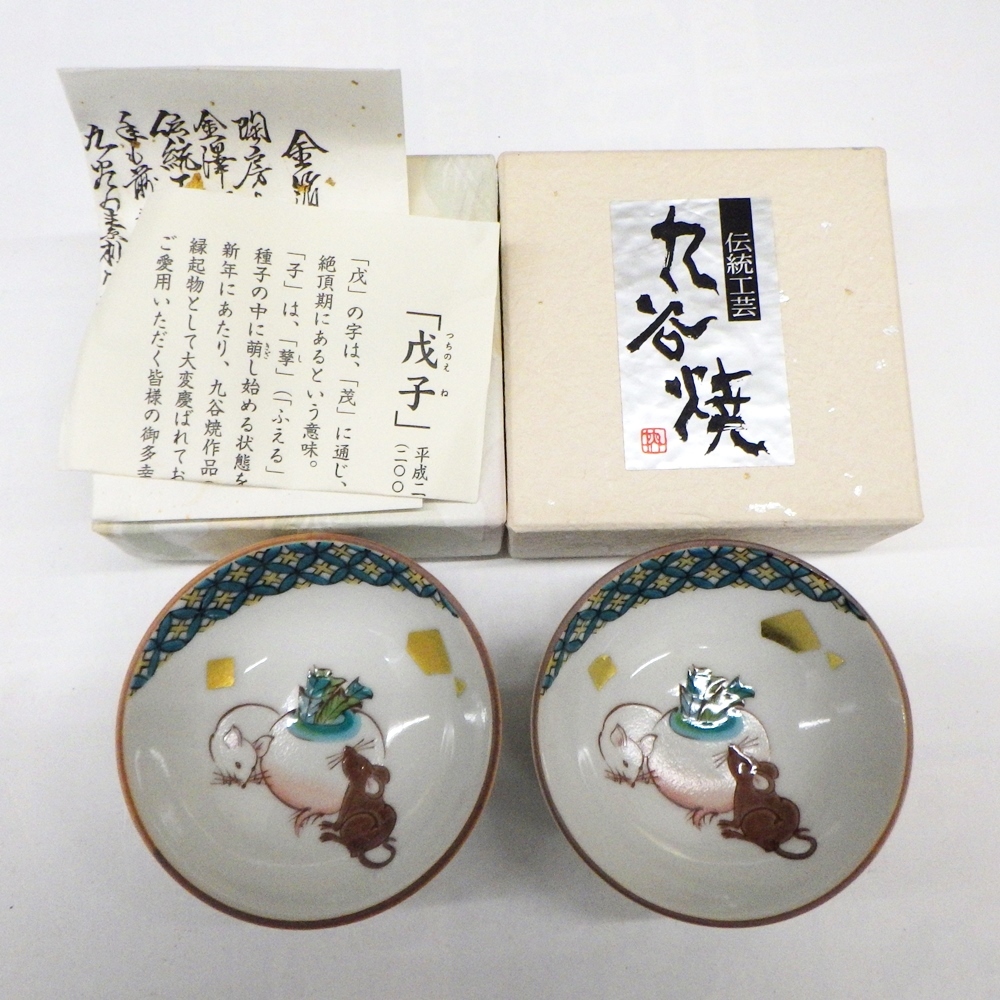 伝統工芸
九谷焼
「戊子」
つちのえ ね
平成二
(二〇〇
「戊」の字は、「茂」に通じ、
絶頂期にあるという意味。
「子」は、「孳」(「ふえる」
し
種子の中に萌し始める状態を
きざ
新年にあたり、九谷焼作品
縁起物として大変慶ばれてお
ご愛用いただく皆様の御多幸
金箔
陶房
金澤
伝統工
手
九谷
素材